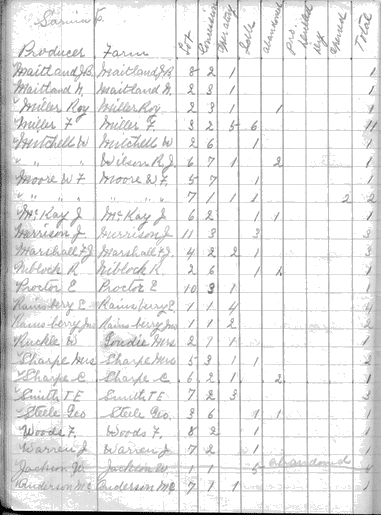 Sarnia T.
Producer Farm Lot Concession Operating Idle abandoned pro Drilled Dry Total
Maitland J.B. Maitland J.B. 8 2 1 1
Maitland N. Maitland N. 2 3 1 1
Miller Roy Miller Roy. 2 3 1 1 1
Miller F Miller F. 3 2 5 6 11
Mitchell W Mitchell W 2 6 1 1
" " " Wilson R.J. 6 7 1 2
Moore W F Moore W.F. 5 7 1 1
" " " " " " 7 1 1 1 2 2
McKay J. McKay J. 6 2 1 1 1
Morrison J. Morrison J. 11 3 3 3
Marshall F.J. Marshall F.J. 4 2 2 1 3
Niblock R. Niblock R. 2 6 1 1
Proctor E Proctor E 10 3 1 1
Rainsberry E Rainsberry E. 1 1 4 4
Rainsberry Jno Rainsberry Jno 1 1 2 2
Ruckle W Mrs 2 7 1 1
Sharpe Mrs Sharpe Mrs 5 3 1 1 2
Sharpe C Sharpe C. 6 2 1 2
Smith T E Smith T E 7 2 3 3
Steele Geo Steele Geo. 3 6 1 1
Woods F. Woods F. 8 2 1 1
Warren J Warren J 7 2 1 1
Jackson W Jackson W. 1 1 5 abandoned
Anderson Mc Anderson Mc 7 1 1 1